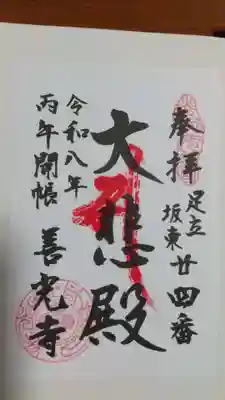 奉拝
足立
坂東廿四番
大悲殿
令和八年
丙午開帳
善光寺